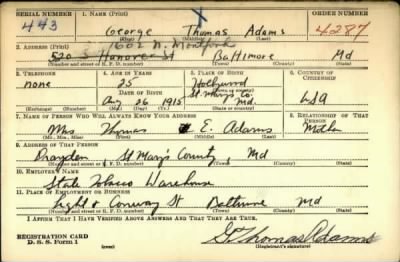 SERIAL NUMBER 1. NAME (Print) ORDER NUMBER
443 George Thomas Adams 4287
(First) (Middle) (Last)
2. ADDRESS (Print) 1602 N. Montford
520 S Hanover St Baltimore Md
(Number and street or R. F. D. number) (Town) (County) (State)
3. TELEPHONE 4. AGE IN YEARS 5. PLACE OF BIRTH 6. COUNTRY OF CITIZENSHIP
none 25 Hollywood
DATE OF BIRTH St. Mary's Co. USA
Aug 26 1915 Md.
(Exchange) (Number) (Mo.) (Day) (Yr.) (State or country)
7. NAME OF PERSON WHO WILL ALWAYS KNOW YOUR ADDRESS 8. RELATIONSHIP OF THAT PERSON
Mrs Thomas E. Adams Mother
(Mr., Mrs., Miss) (First) (Middle) (Last)
9. ADDRESS OF THAT PERSON
Drayden St Mary's County Md
(Number and street or R. F. D. number) (Town) (County) (State)
10. EMPLOYER'S NAME
State Tobacco Warehouse
11. PLACE OF EMPLOYMENT OR BUSINESS
Light & Conway St Baltimore Md
(Number and street or R. F. D. number) (Town) (County) (State)
I AFFIRM THAT I HAVE VERIFIED ABOVE ANSWERS AND THAT THEY ARE TRUE.
REGISTRATION CARD
D. S. S. Form 1 (over) G Thomas Adams
(Registrant's signature)